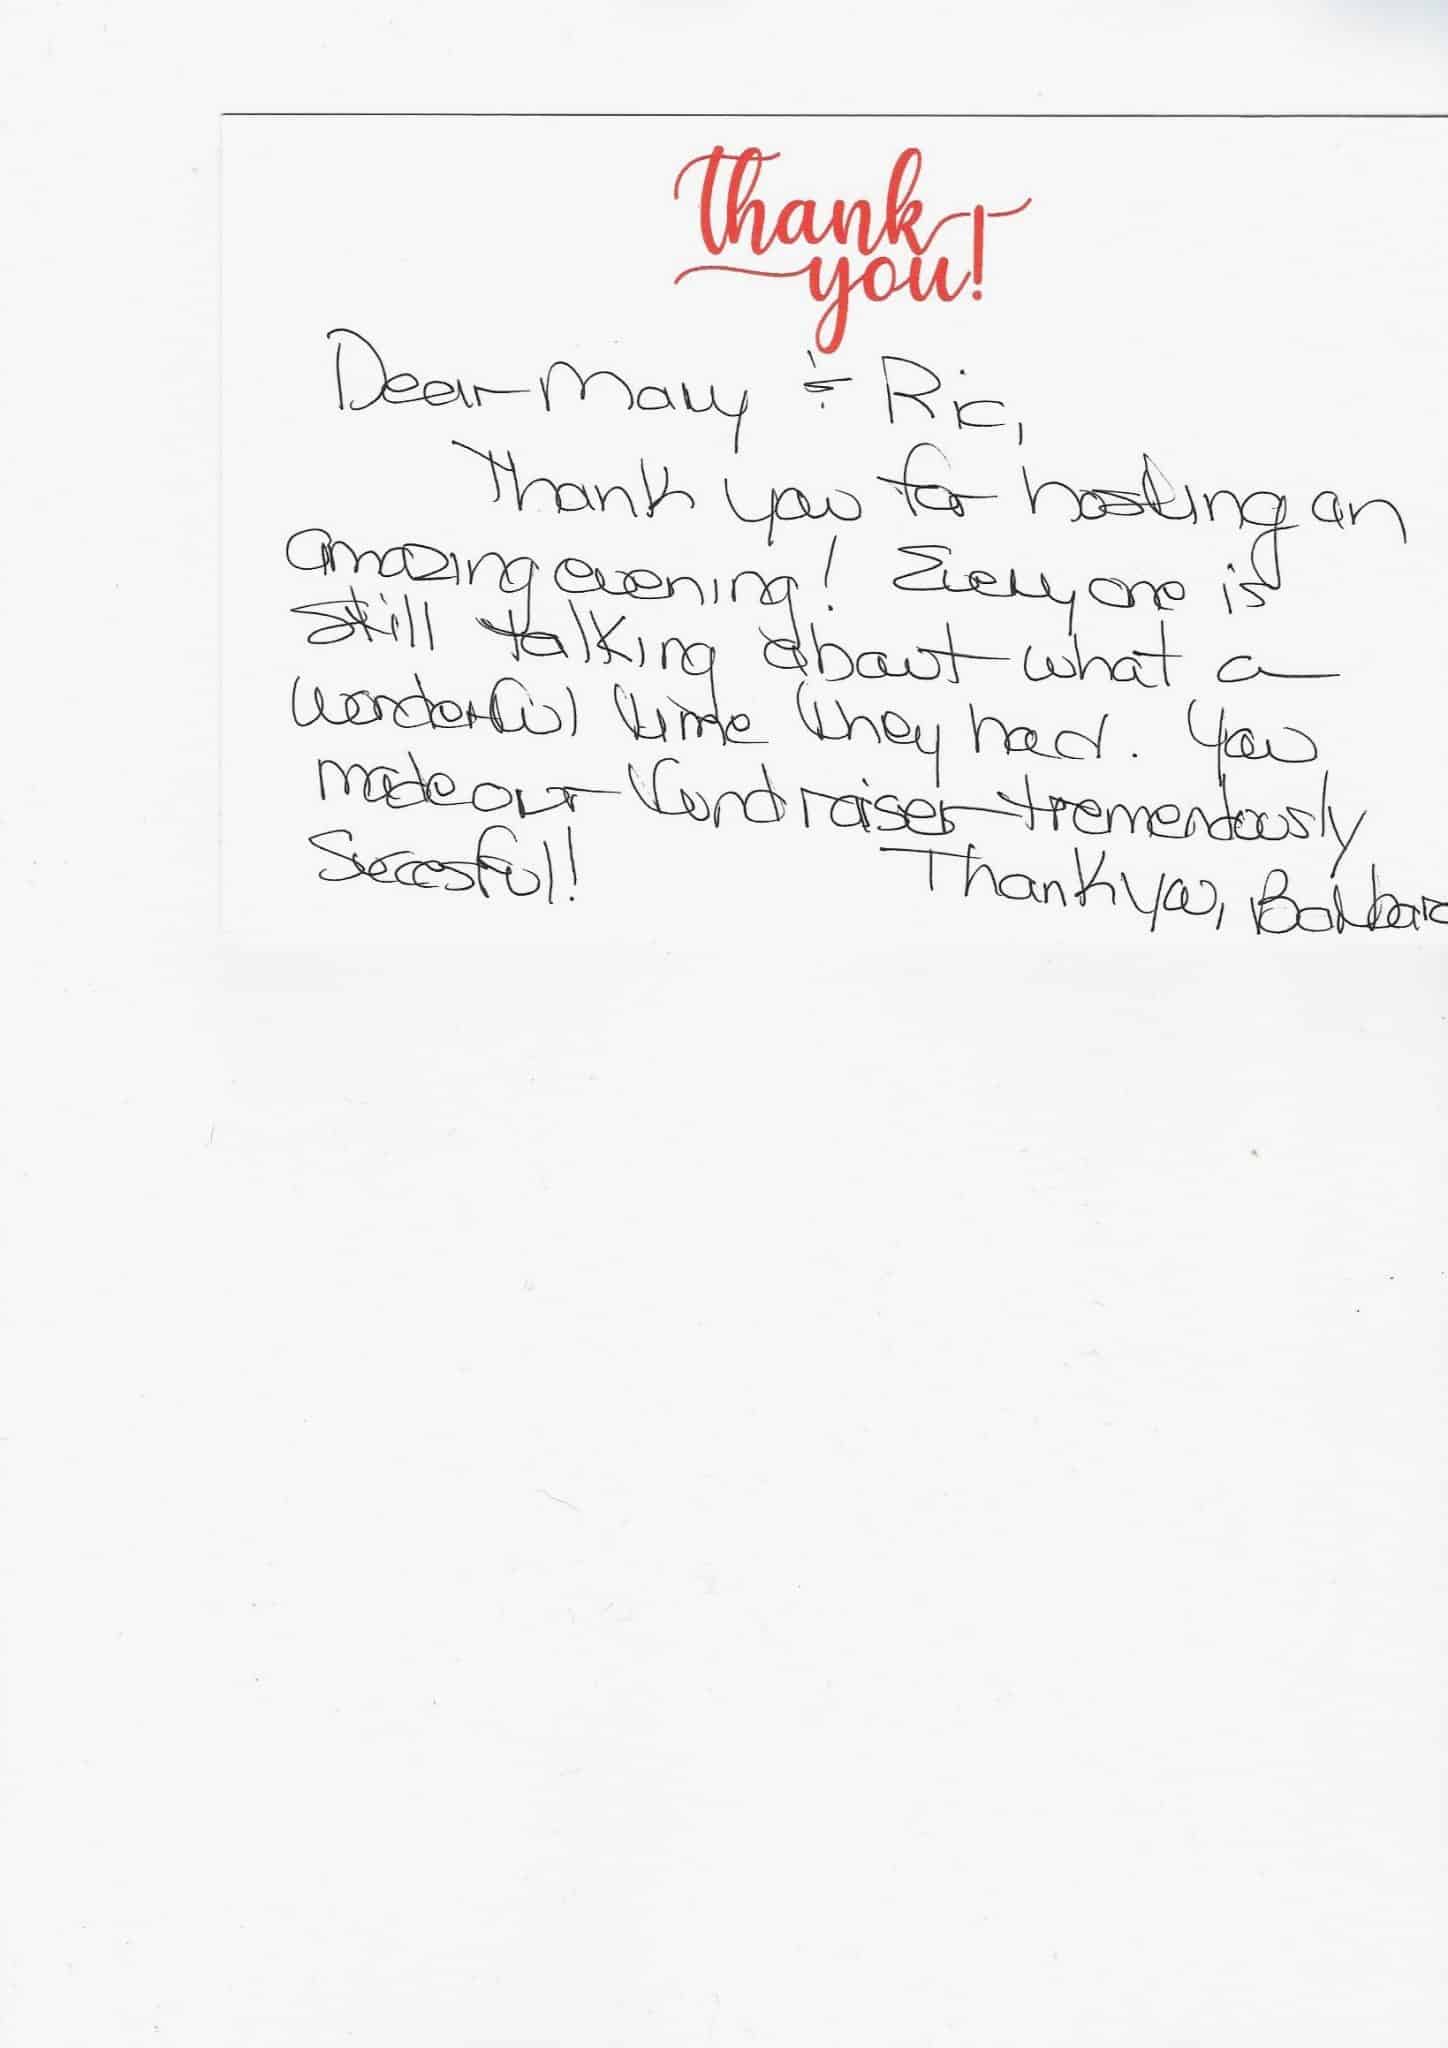 thank
you!
Dear Mary & Ric,
Thank you for hosting an
amazing evening! Everyone is
still talking about what a
wonderful time they had. You
made our fundraiser tremendously
Succesful!
Thank you, Barbara